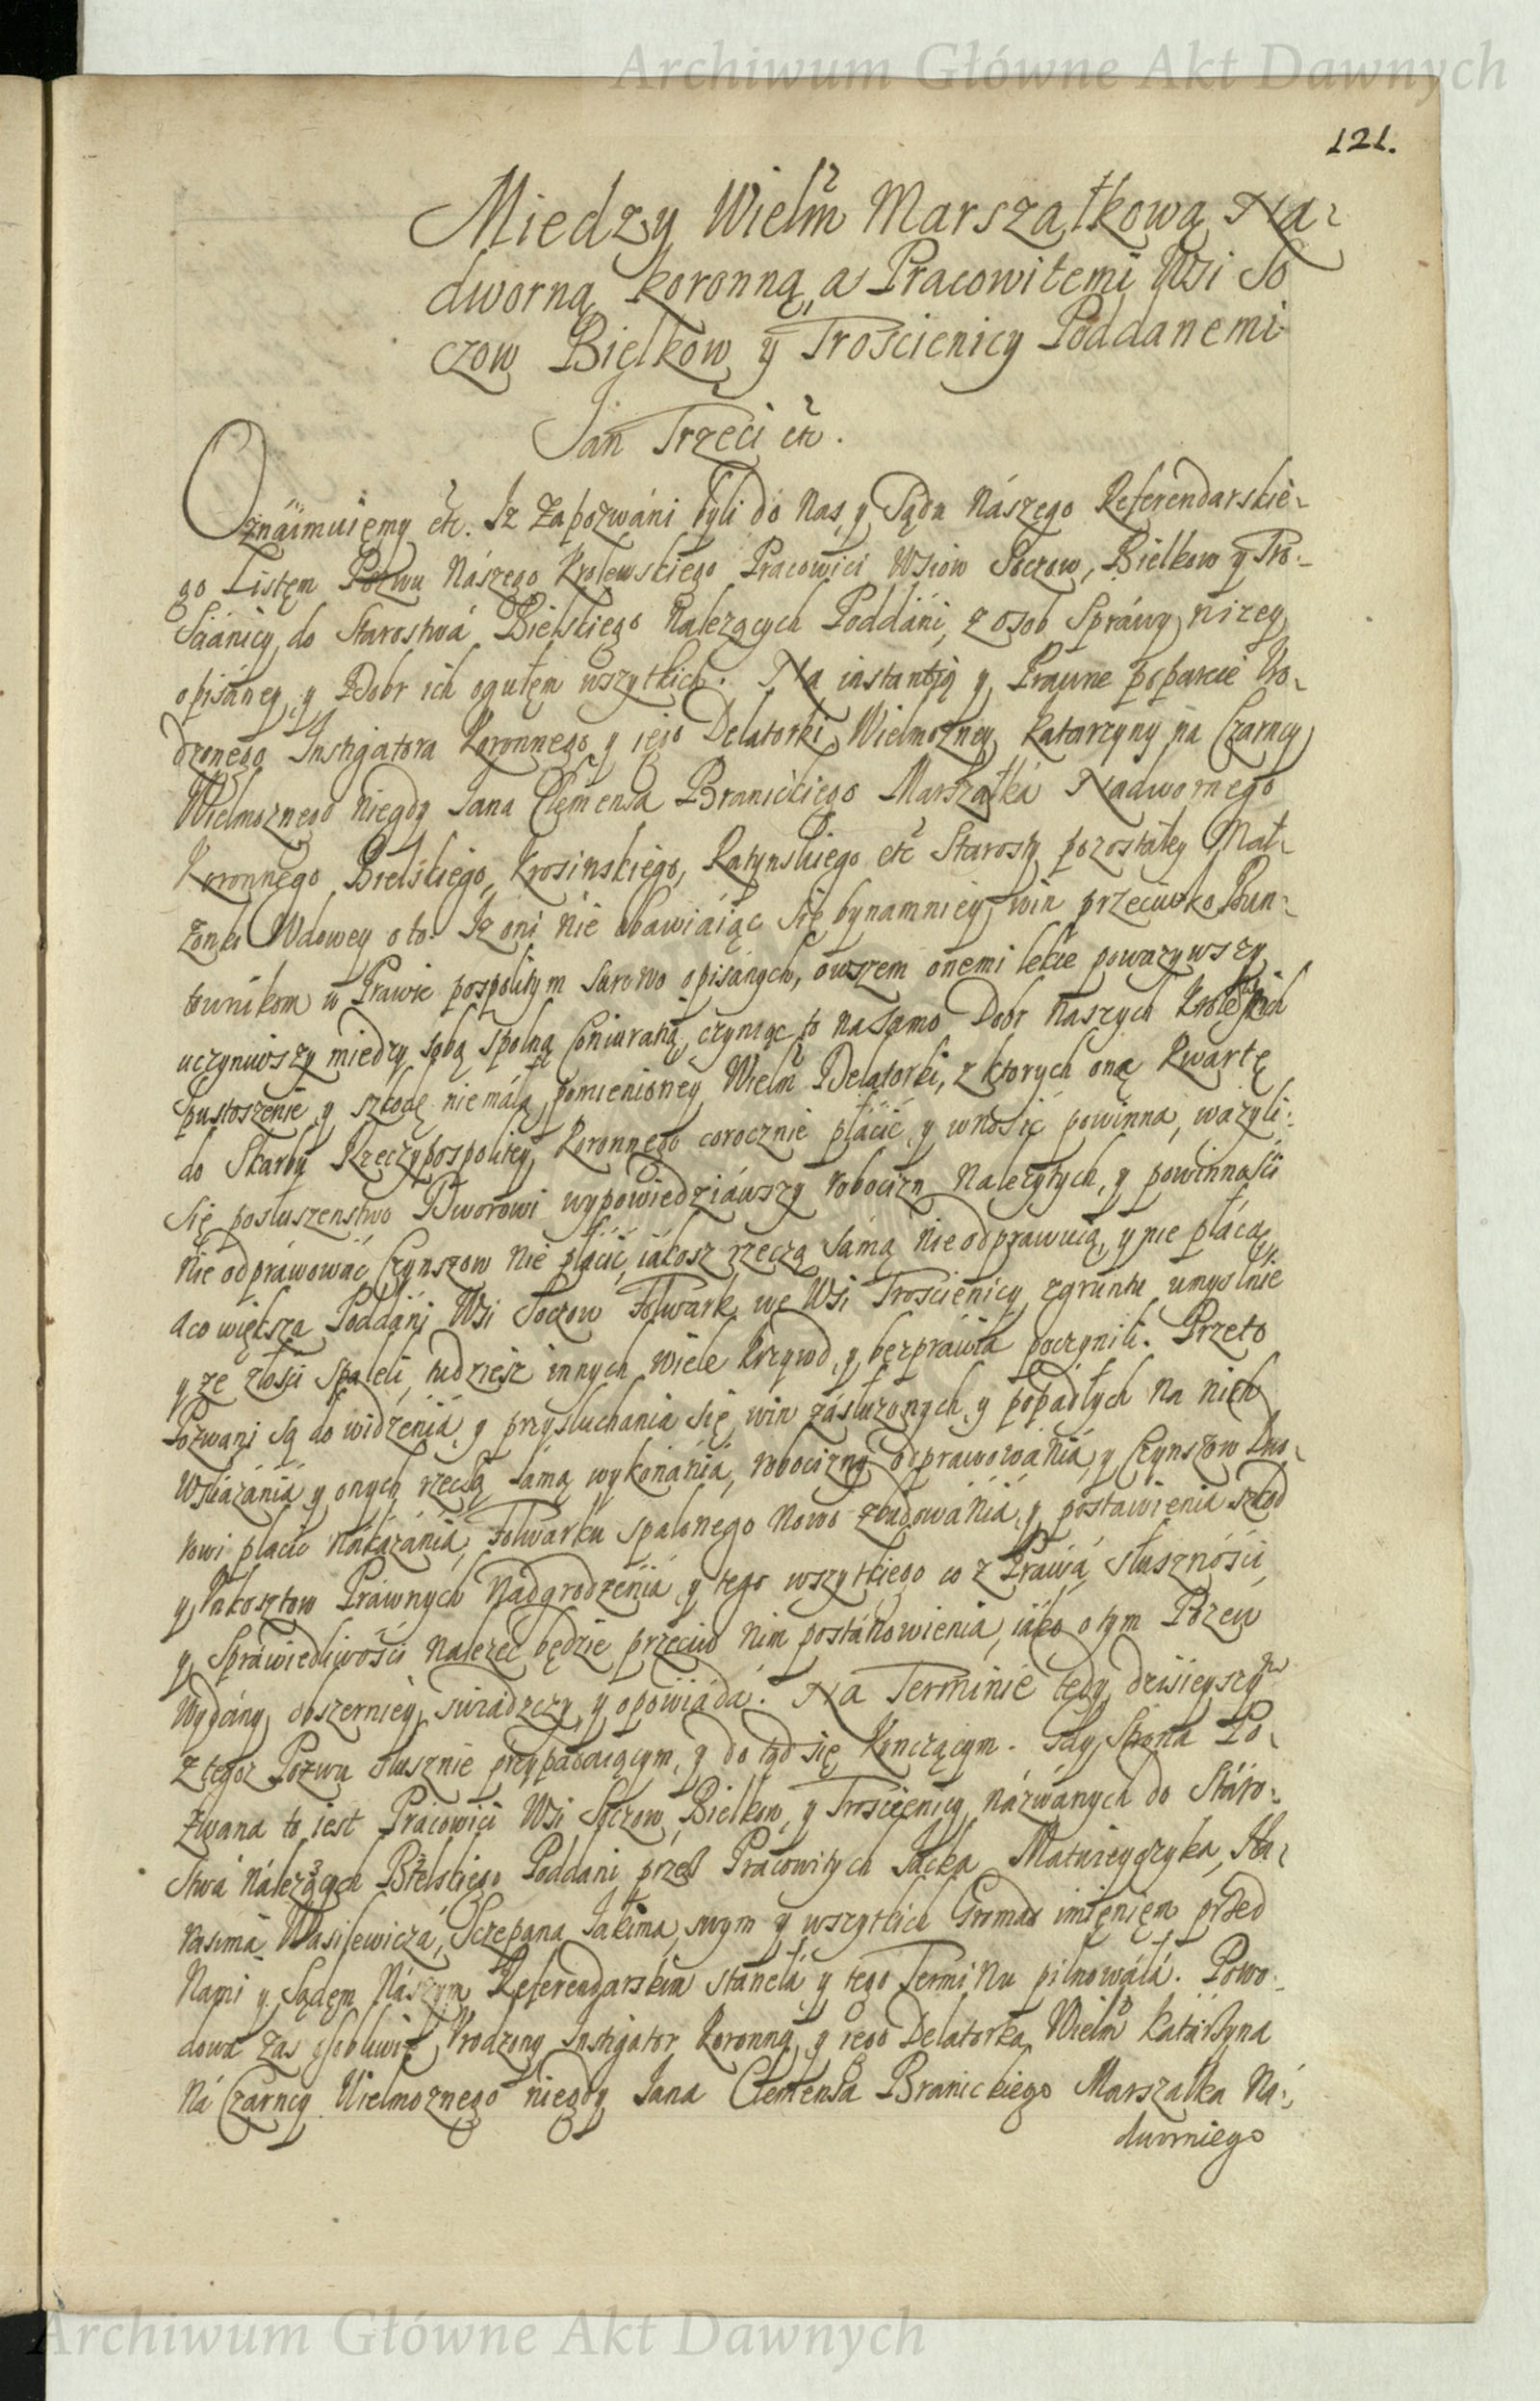 Archiwum Główne Akt Dawnych
121.
Miedzy Wielm Marszałkową Na-
dworną Koronną, a Pracowitemi Wsi So
czow Bielkow y Trościenicy Poddanemi
Jan Trzeci etc.
Oznaimuiemy etc. Iz Zapozwani byli do Nas, y Sądu Nászego Referendarskie-
go Listem Pozwu Nászego Krolewskiego Pracowici Wsiow Soczow, Bielkow y Tro-
Sciánicy do Starostwá Bielskiego Nalezących Poddáni, z osob Spráwy nizey
opisáney, y Dobr ich ogułem wszytkich. Na instantią y Prawne poparcie Uro-
dzonego Instigatora Koronnego y iego Delatorki Wielmozney Katarzyny na Czarncy
Wielmoznego Niegdy Jana Clemensa Branickiego Marszałká Nadwornego
Koronnego Bielskiego, Krosinskiego, Ratynskiego etc Starosty pozostałey Mał-
zonki Wdowey oto: Iz oni nie obawiáiąc Się bynamniey win przeciwko Bun-
townikom w Prawie pospolitym Surowo opisánych, owszem onemi lekce powazywszy
uczyniwszy miedzy sobą spolną Coniuratią, czyniąc to na samo Dobr Naszych Krolewskich
Spustoszenie y szkodę niemáłą, pomienioney Wielm Delatorki, z ktorych oną Kwartę
do Skarbu Rzeczypospolitey Koronnego corocznie płácić y wnosić powinna, wazyli
Się posłuszenstwo Dworowi wypowiedziáwszy robocizn Nalezytych, y powinności
Nie odpráwowáć Czynszow Nie płácić, iákosz rzeczą sámą Nie odprawuią, y nie płácą,
Aco większa Poddáni Wsi Soczow Folwark we Wsi Trościenicy zgruntu umyslnie
y ze złości spalili, tudziesz innych wiele Krzywd, y bezpráwia poczynili. Przeto
Pozwani są do widzenia y przysłuchania się, win zásłuzonych y popádłych na nich
Wskázániá y onych rzeczą sámą wykonániá, robocizny odprawowániá, y Czynszow Dwo-
rowi płacić Nákázániá, Folwarku spalonego Nowo zbudowániá, y postáwienia szkod
y Nakosztow Prawnych Nadgrodzeniá y tego wszytkiego co z Prawá, słuszności,
y Spráwiedliwości Nalezeć będzie przeciw Nim postánowienia, iáko o tym Pozew
Wydány obszerniey swiadczy y opowiáda. Na Terminie tedy dzisieyszym
Z tegoz Pozwu słusznie przypadaiącym, y do tąd się Konczącym. Gdy Strona Po-
zwana to iest Pracowici Wsi Soczow, Bielkow, y Trościenicy názwánych do Stáro-
stwá Nálezących Bielskiego Poddani przez Pracowitych Jacka Matwieyczyka, Ha-
rasima Wasilewicza, Sczepana Jakima, swym y wszytkich Gromad imięniem przed
Nami y Sądem Nászym Referendarskim stáneła y tego Terminu pilnowáłá. Powo-
dowa zas osobliwie Urodzony Instigator Koronny, y iego Delatorka Wielm Katárzyna
Ná Czarncy Wielmoznego niegdy Jana Clemensa Branickiego Marszałka Ná-
dworniego
Archiwum Główne Akt Dawnych